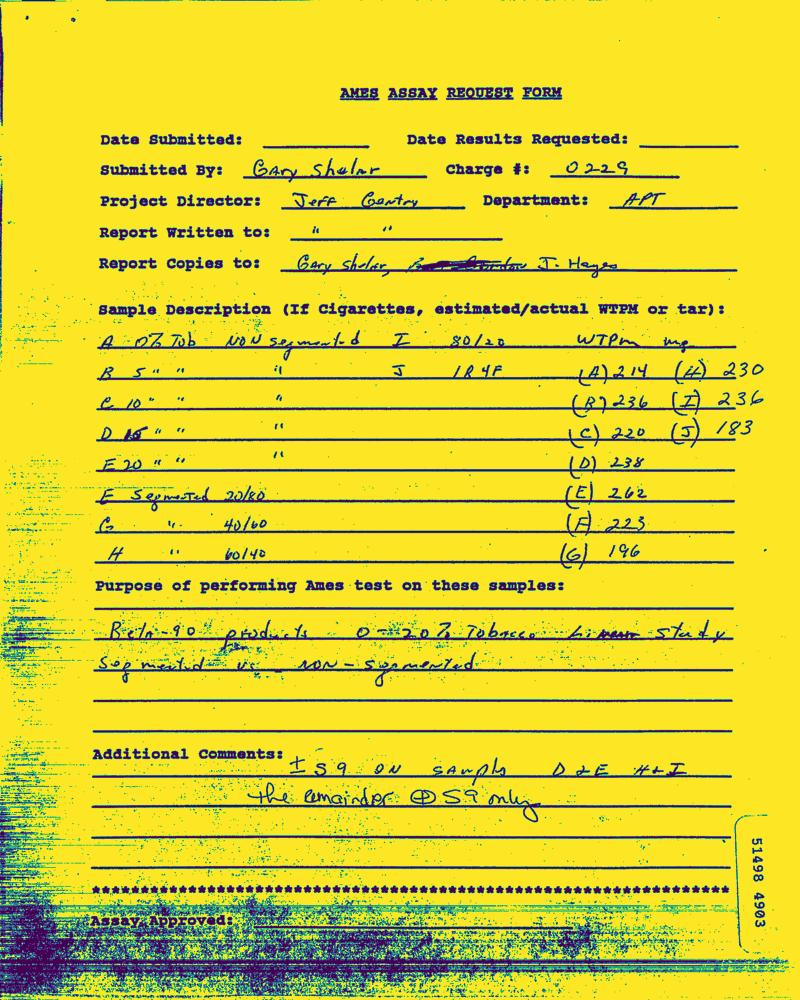 AMES ASSAY REQUEST FORM
Date Submitted: Date Results Requested:
Submitted By: Gary Shelar Charge #: 0229
Project Director: Jeff Gentry Department: APT
Report Written to: " "
Report Copies to: Gary Shelar, J. Hayes
Sample Description (If Cigarettes, estimated/actual WTPM or tar):
A 0% Tob NON segmented I 80/20 WTPM mg
B 5 " " " J 1R4F (A) 214 (H) 230
C 10 " " " (B) 236 (I) 236
D 15 " " " (C) 220 (J) 183
E 20 " " " (D) 238
F Segmented 20/80 (E) 262
G " 40/60 (F) 223
H " 60/40 (G) 196
Purpose of performing Ames test on these samples:
Beta-90 products 0-20% Tobacco study
Segmented vs NON-segmented
Additional Comments:
± S9 ON samples D & E H & I
the remainder ⊕ S9 only
Assay Approved:
51498 4903